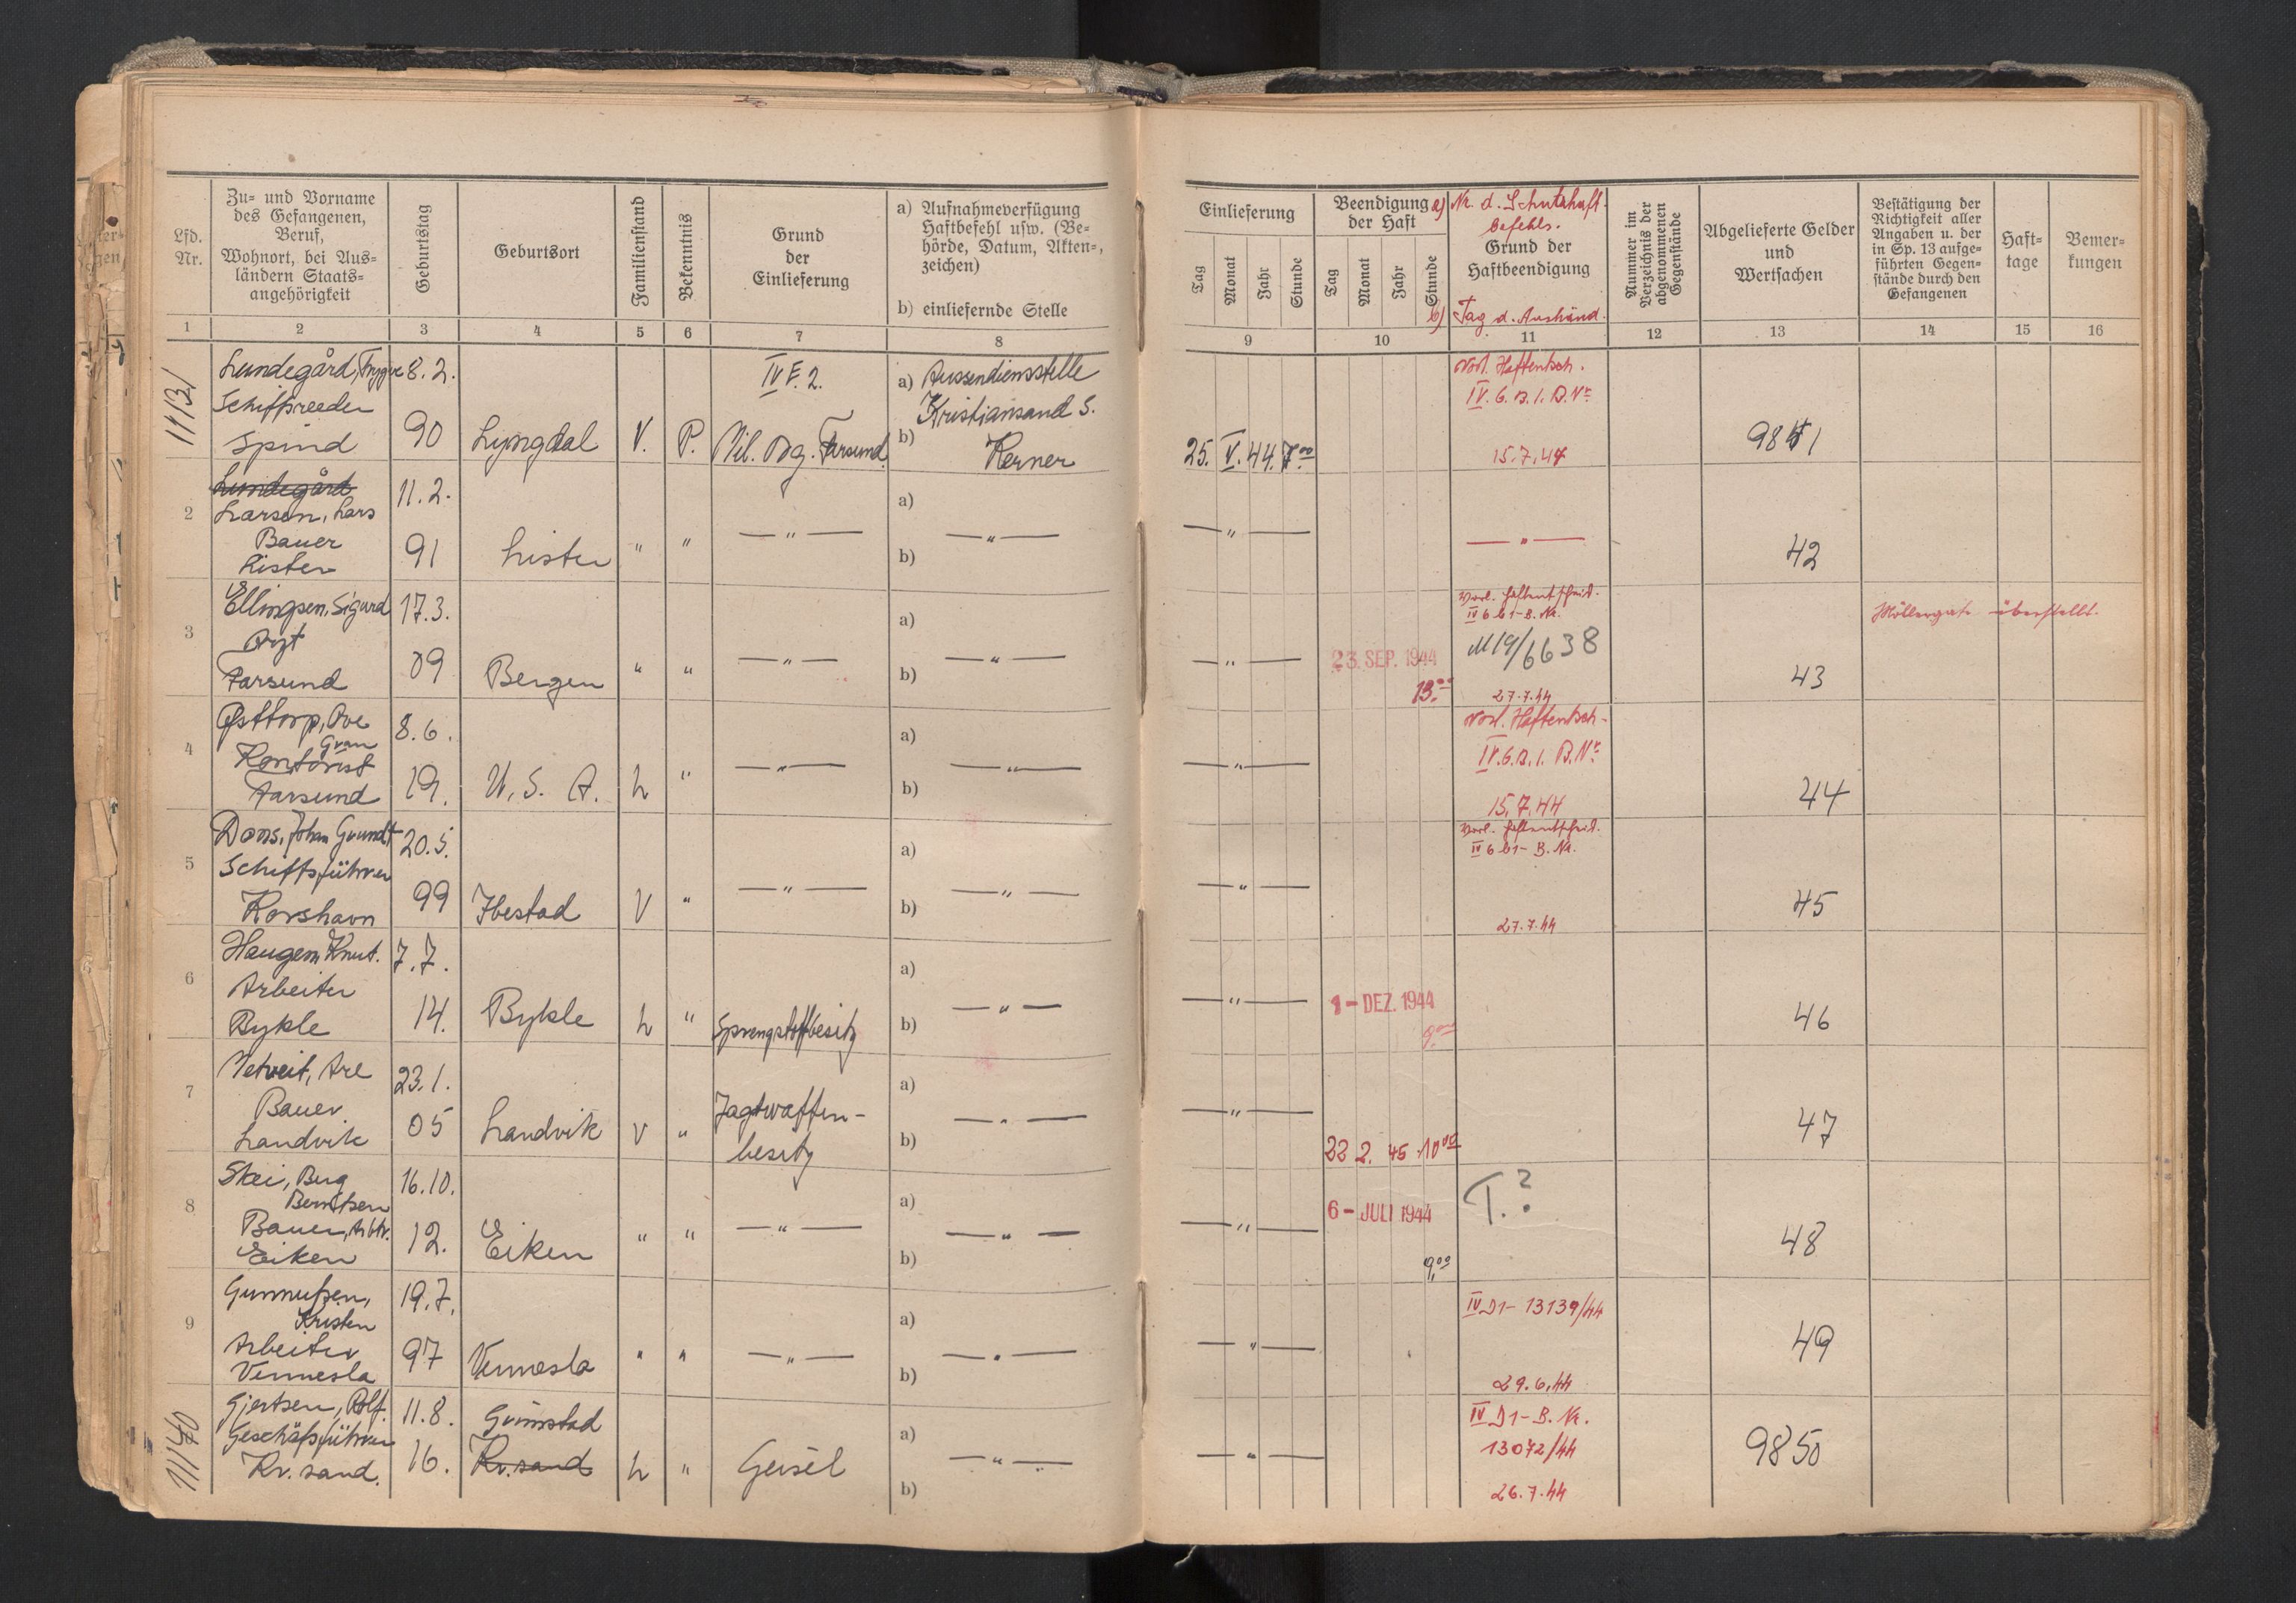 Lfd. Nr.
Zu- und Vorname
des Gefangenen,
Beruf,
Wohnort, bei Aus-
ländern Staats-
angehörigkeit
Geburtstag
Geburtsort
Familienstand
Bekenntnis
Grund
der
Einlieferung
a) Aufnahmeverfügung
Haftbefehl usw. (Be-
hörde, Datum, Akten-,
zeichen)
b) einliefernde Stelle
Einlieferung
Tag Monat Jahr Stunde
Beendigung
der Haft
Tag Monat Jahr Stunde
a) Nr. d. Schutzhaft-
befehls.
Grund der
Haftbeendigung
b) Tag d. Aushänd.
Nummer im
Verzeichnis der
abgenommenen
Gegenstände
Abgelieferte Gelder
und
Wertsachen
Bestätigung der
Richtigkeit aller
Angaben u. der
in Sp. 13 aufge-
führten Gegen-
stände durch den
Gefangenen
Haft-
tage
Bemer-
kungen
1 2 3 4 5 6 7 8 9 10 11 12 13 14 15 16
11131
Lundegård, Trygve 8.2. IV F. 2. a) Aussendiensstelle Vorl. Haftentsch.
Schiffreeder Kristiansand S. IV. 6. B. 1. B. Nr.
Spind 90 Lyngdal V. P. Mil. Org. Farsund b) Kerner 25. V. 44. 7.00 15.7.44 9841
2 Lundegård 11.2. a)
Larsen, Lars
Bauer — " — — " — — " — — " —
Lister 91 Lister " " b) 42
3 Ellingsen, Sigurd 17.3. a) Vorl. Haftentscheid.
Arzt IV 6 b 1 - B. Nr. Möllergate überstellt.
Farsund 09 Bergen " " — " — b) — " — — " — 23. SEP. 1944 M19/6638 43
13.00 27.7.44
4 Østtorp, Ove 8.6. a) Vorl. Haftentsch.
Gran
Kontorist — " — — " — — " — IV. 6. B. 1. B. Nr.
Farsund 19. U. S. A. L " b) 15.7.44 44
5 Dons, Johan Grundt 20.5. a) Vorl. Haftentscheid.
Schiffsführer IV 6 b 1 - B. Nr.
Korshavn 99 Ibestad V " — " — b) — " — — " — 27.7.44 45
6 Haugen, Knut. 7.7. a)
Arbeiter
Bykle 14. Bykle L " Sprengstoffbesitz b) — " — — " — 1 - DEZ. 1944 46
9.00
7 Netveit, Are 23.1. a)
Bauer Jagtwaffen-
Landvik 05 Landvik V " besitz b) — " — — " — 22 2. 45 10.00 47
8 Skei, Berg 16.10. a) 6 - JULI 1944 T.?
Berntsen
Bauer, Arbtr. — " — — " — — " —
Eiken 12. Eiken " " b) 9.00 48
9 Gunnufsen, 19.7. a) IV D 1 - 13139/44
Kristen
Arbeiter
Vennesla 97 Vennesla " " — " — b) — " — — " — 29.6.44 49
11140
Gjertsen, Rolf. 11.8. Grimstad a) IV D 1 - B. Nr.
Geschäfsführer 13072/44
Kr. sand. 16. Kr. sand L " Geisel b) — " — — " — 26.7.44 9850